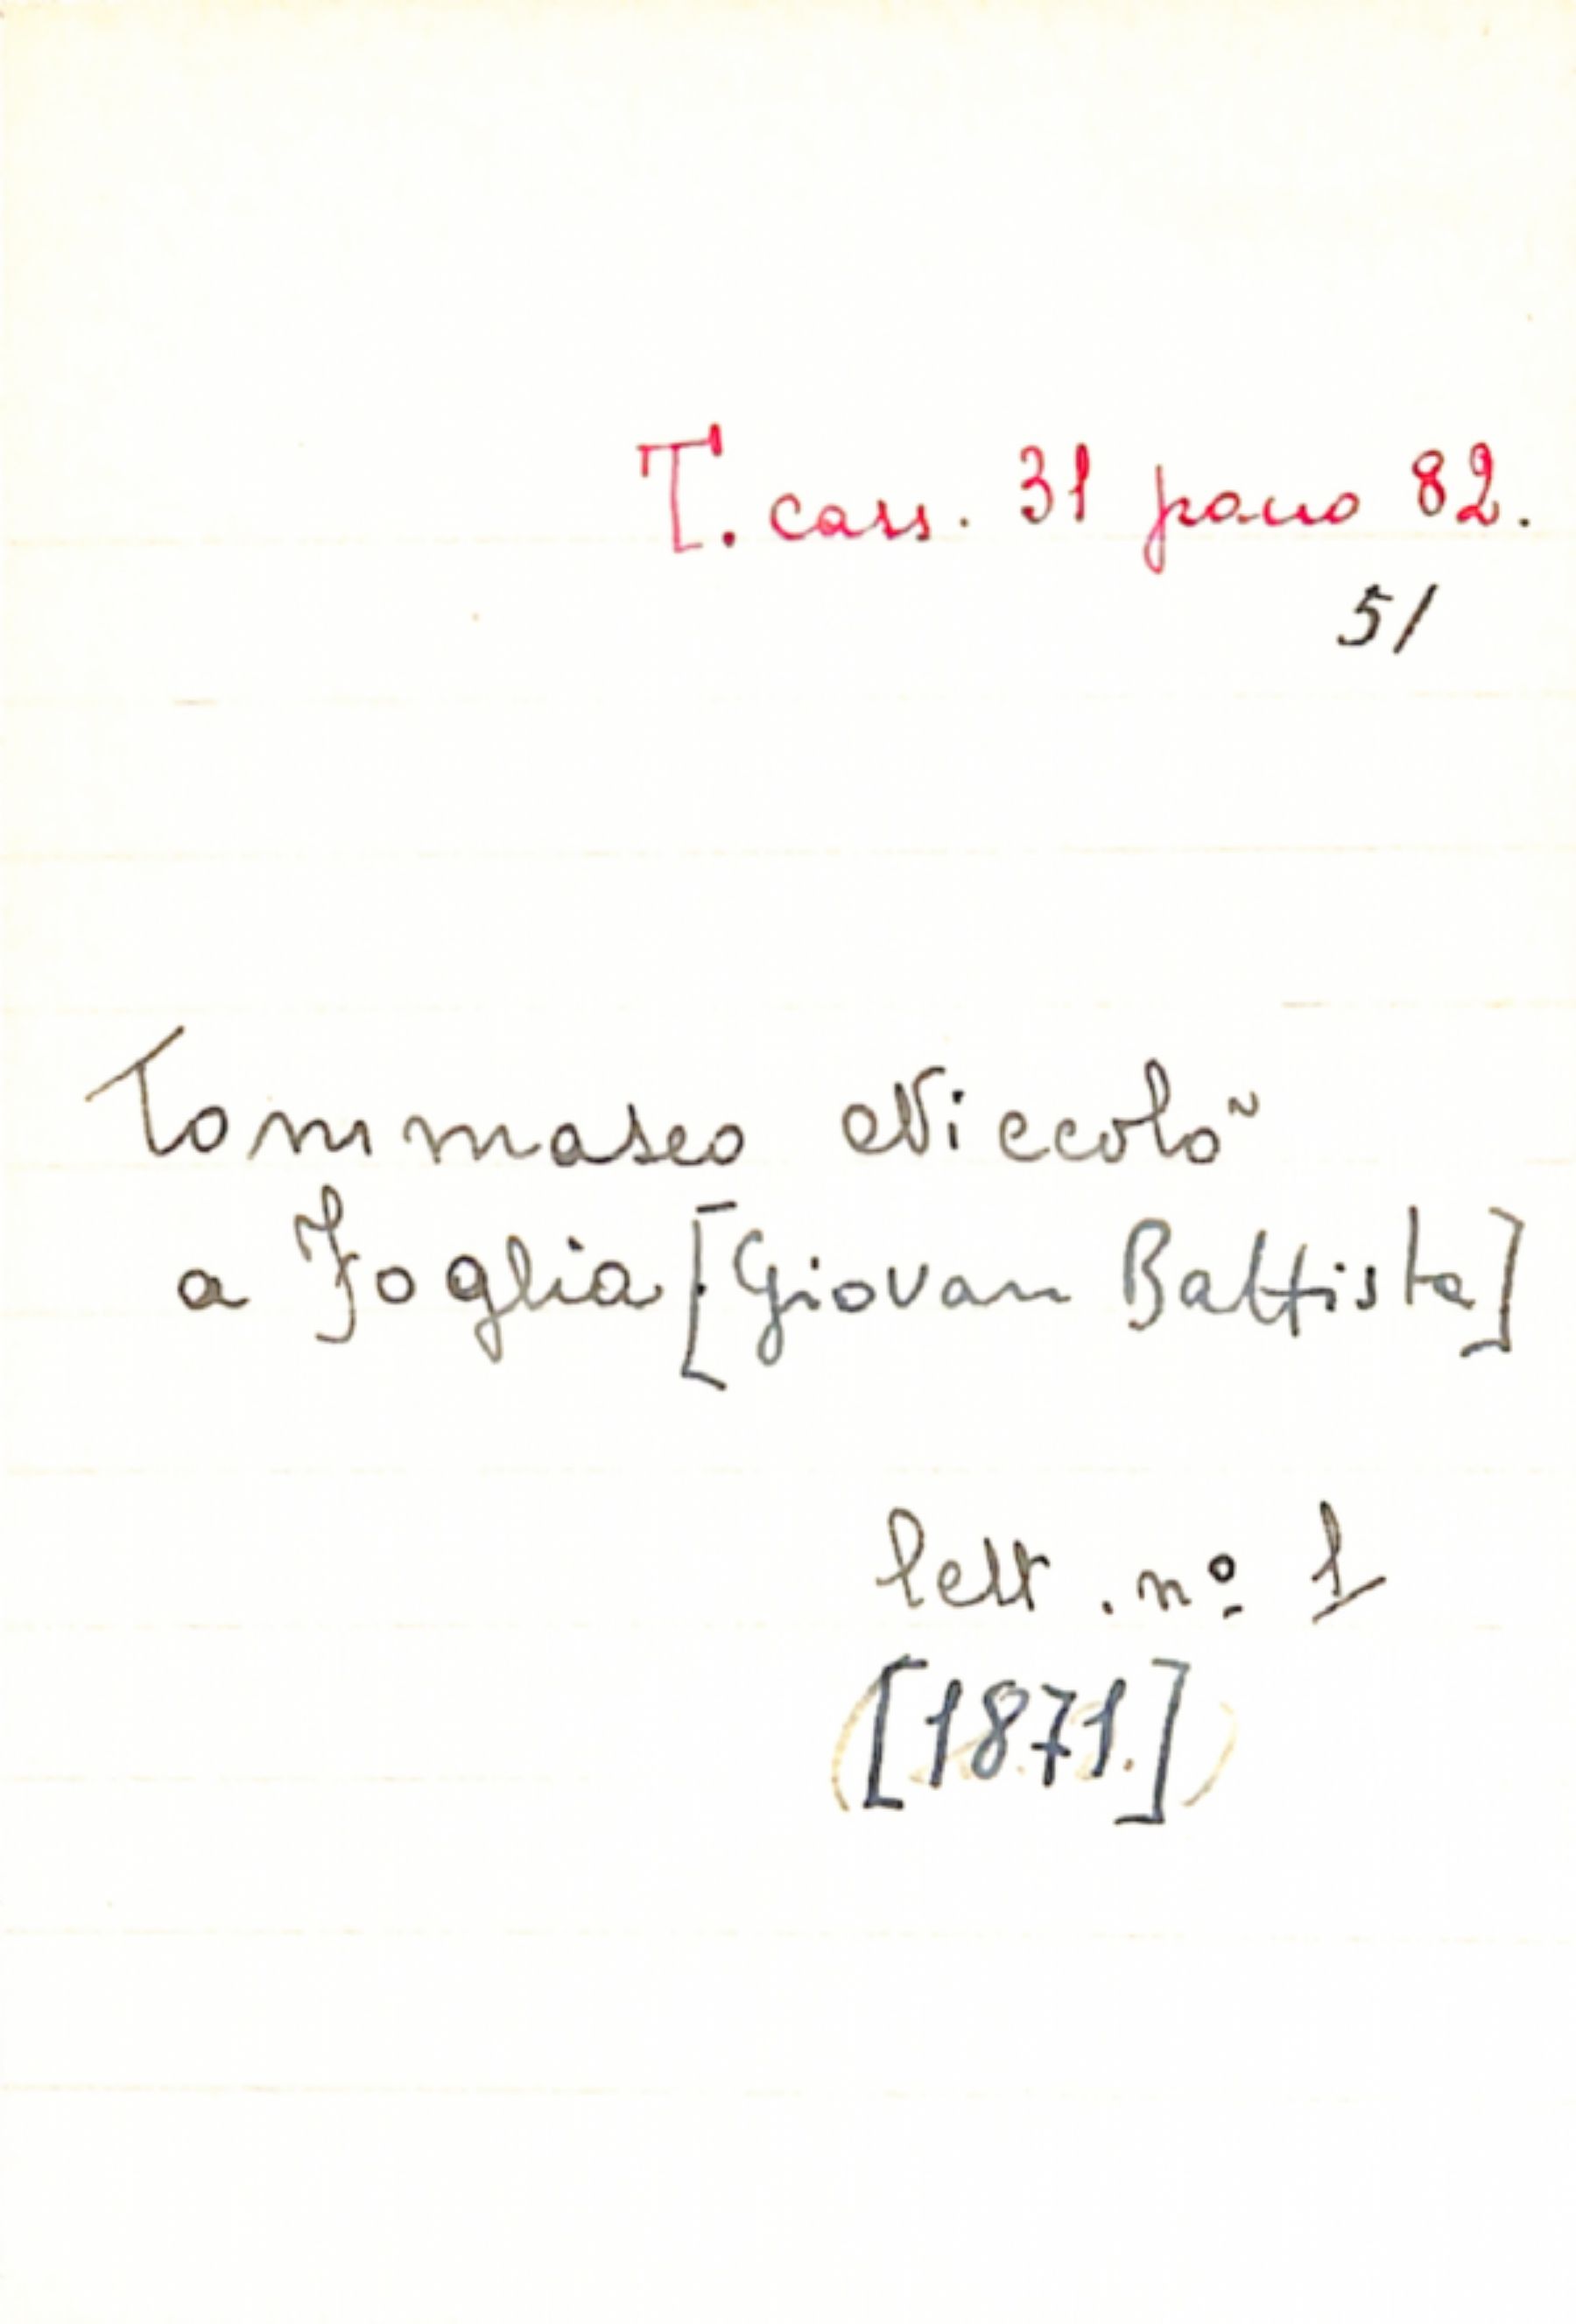 T. cass. 31 panno 82.
5/
Tommaseo Niccolò
a Foglia [Giovan Battista]
lett. nº 1
[1871.]